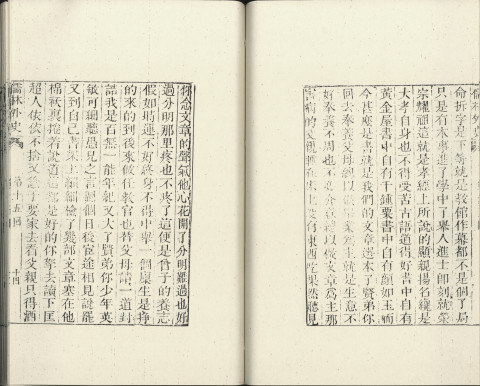 命拆字是下等就是敎館作幕都不是個了局
只是有本事進了學中了舉人進士卽刻就榮
宗耀祖這就是孝經上所說的顯親揚名纔是
大孝自身也不得受苦古語道得好書中自有
黃金屋書中自有千鍾粟書中自有顏如玉而
今甚麼是書就是我們的文章選本了賢弟你
回去奉養父母總以做舉業爲主就是生意不
好奉養不周也不必介意總以做文章爲主那
害病的父親睡在床上沒有東西吃果然聽見
你念文章的聲氣他心花開了分明難過也好
過分明那里疼也不疼了這便是曾子的養志
假如時運不好終身不得中舉一個廩生是掙
的來的到後來做任敎官也替父母請一道封
誥我是百無一能年紀又大了賢弟你少年英
敏可細聽愚兄之言圖個日後宦途相見說罷
又到自己書架上細細檢了幾部文章塞在他
棉襖裏捲着說道這都是好的你拿去讀下匡
超人依依不捨又急于要家去看父親只得洒
儒林外史 第十五回 十四